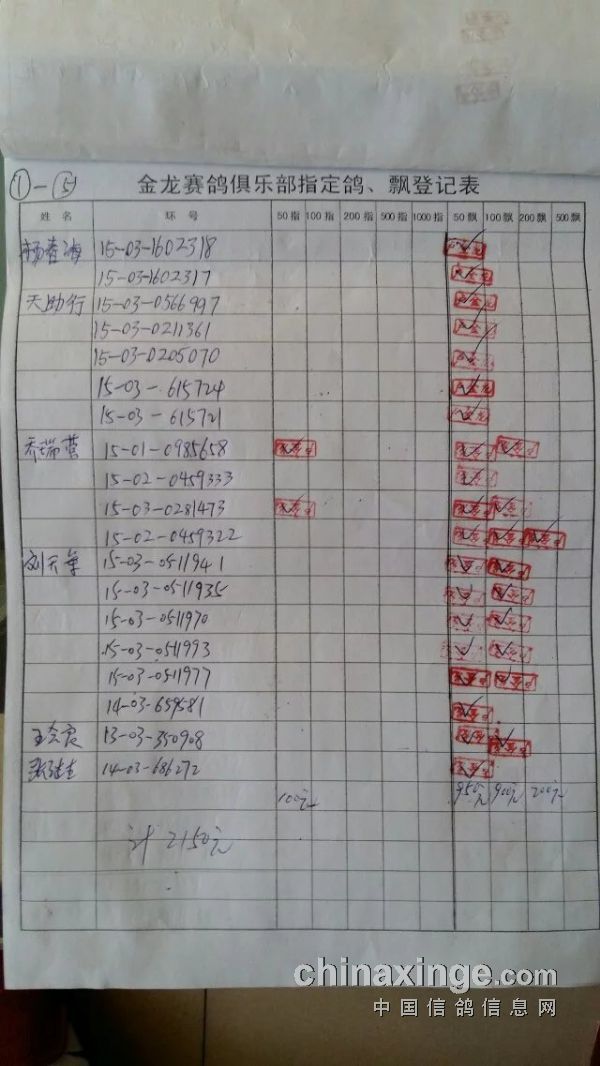 ①-⑤ 金龙赛鸽俱乐部指定鸽、飘登记表
姓名 环号 50指 100指 200指 500指 1000指 50飘 100飘 200飘 500飘
15-03-1602318
15-03-1602317
天助行 15-03-0566997
15-03-0211361
15-03-0205070
15-03-615724
15-03-615721
乔瑞营 15-01-0985658
15-02-0459333
15-03-0281473
15-02-0459322
刘天 15-03-0511941
15-03-0511935
15-03-0511970
15-03-0511993
15-03-0511977
14-03-659581
13-03-350908
14-03-686272
100元 950元 900元 200元
计 2150元
chinaxinge.com
中国信鸽信息网